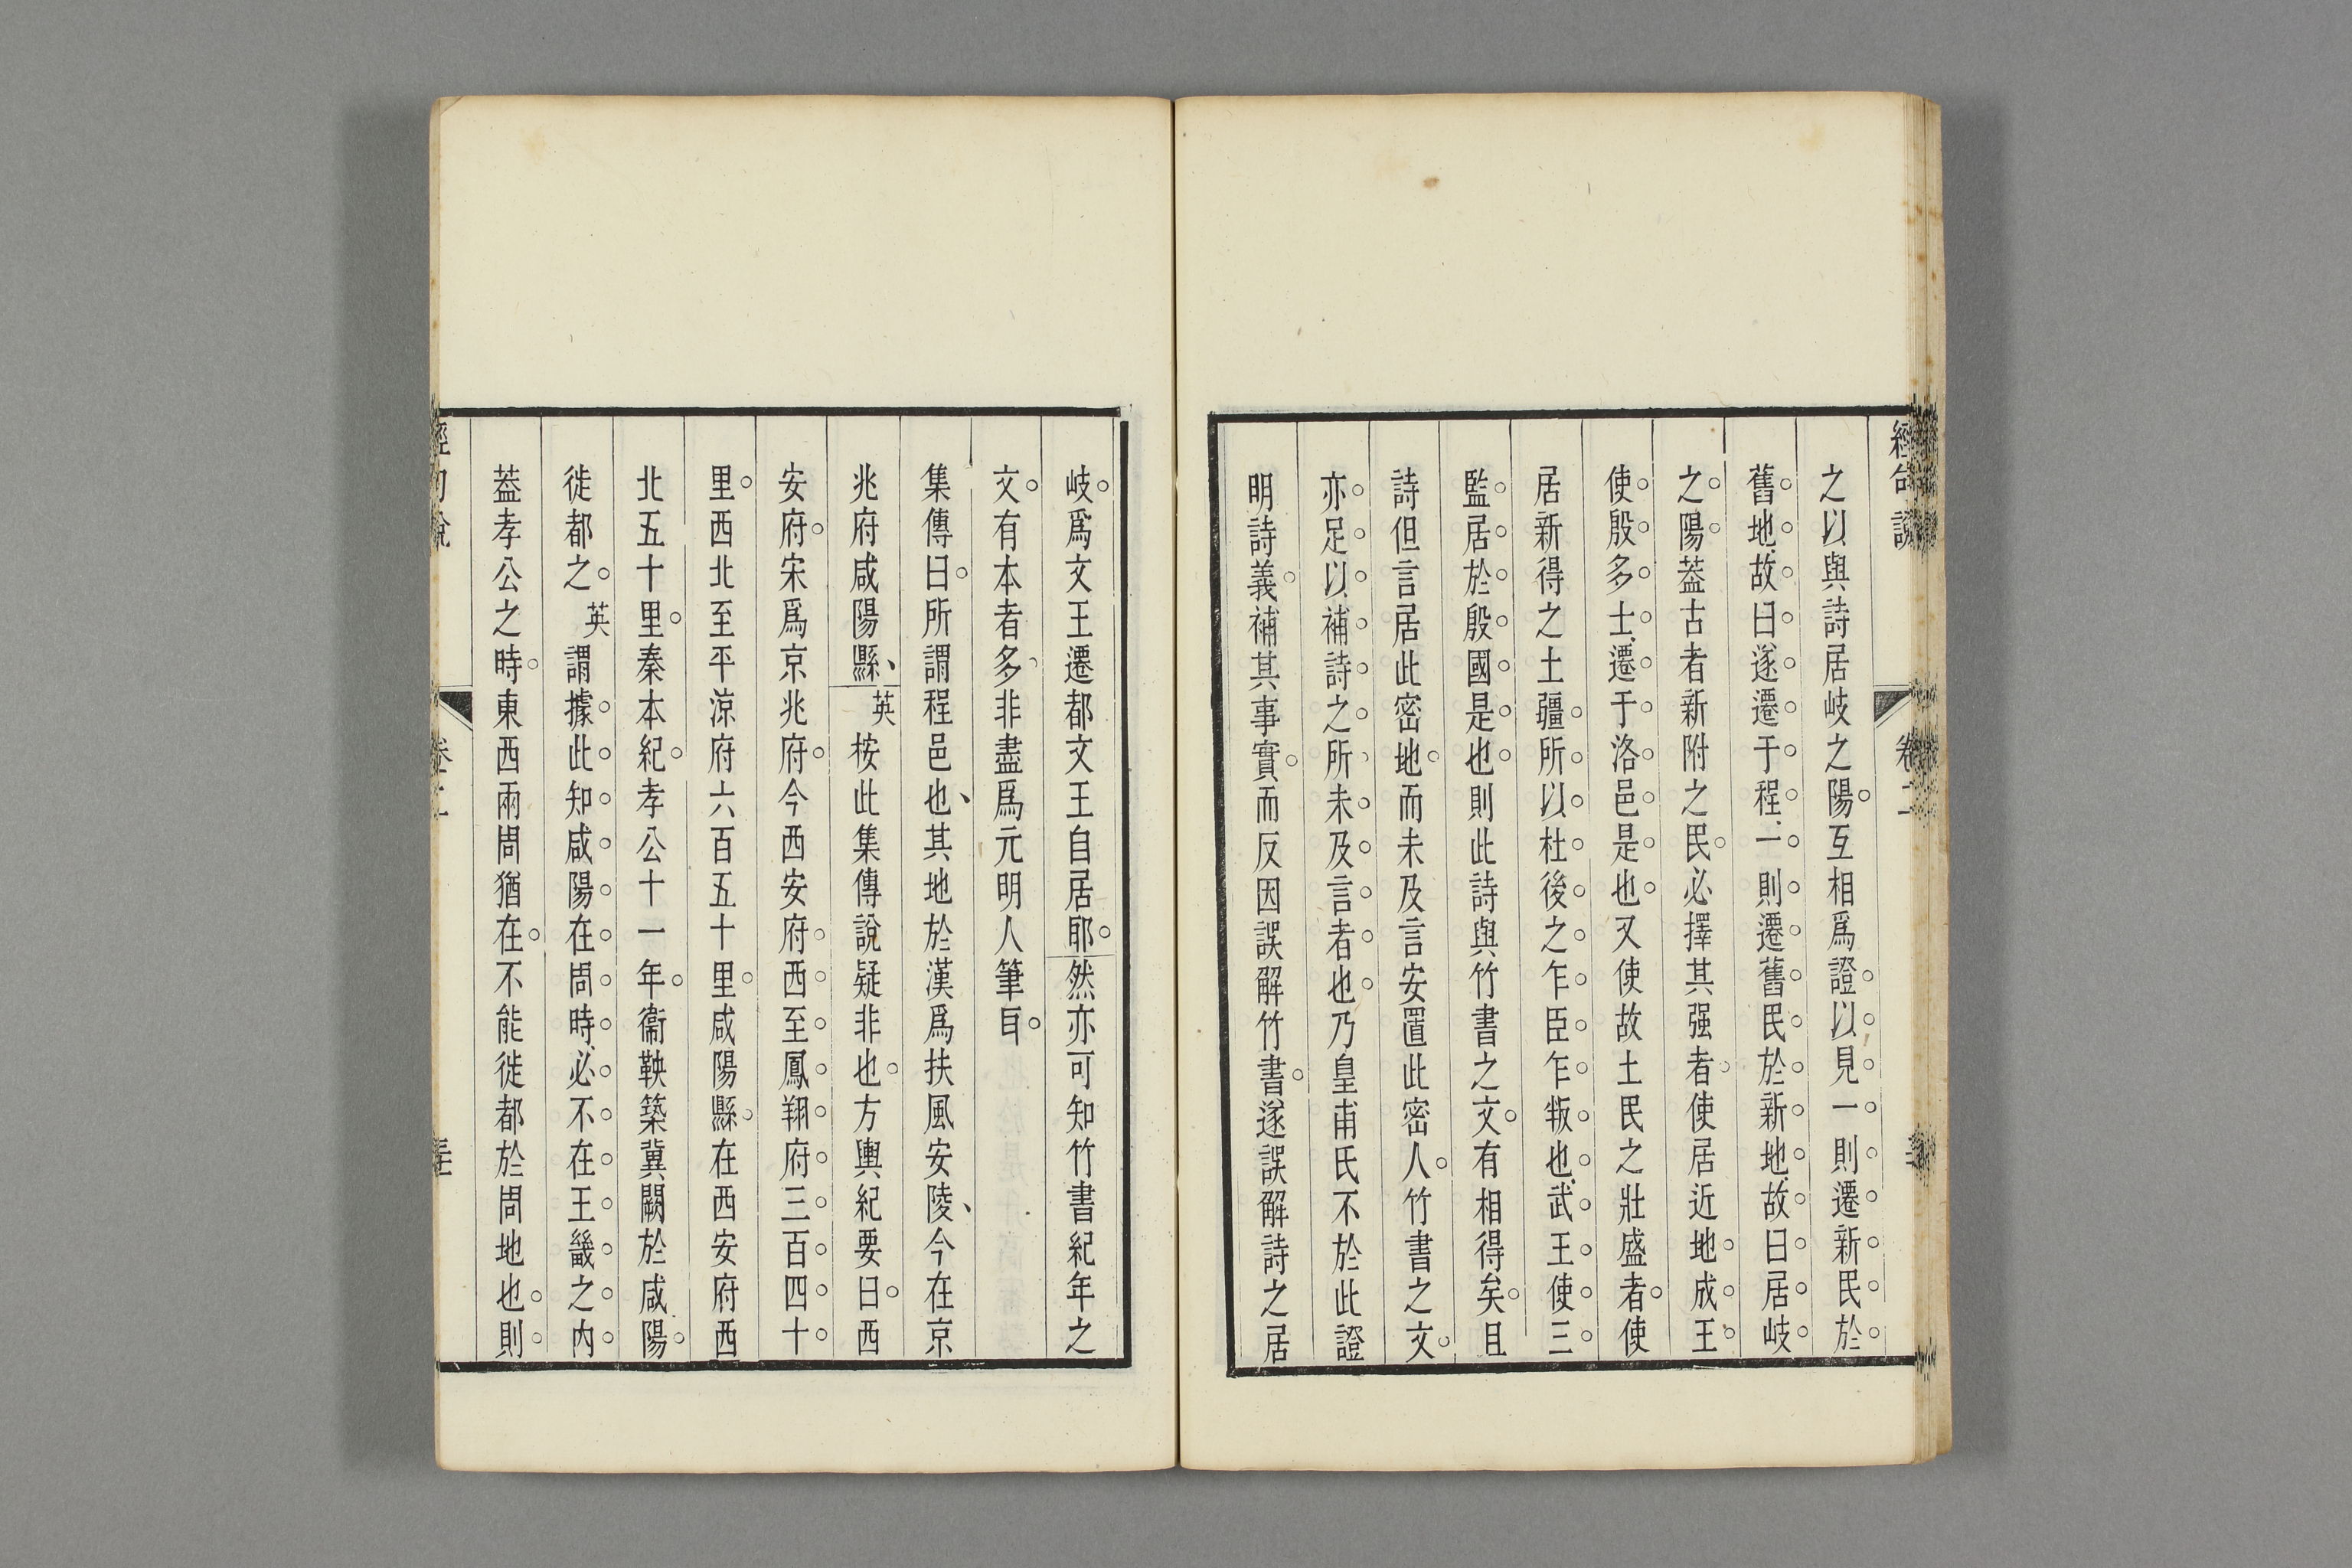 之以與詩居岐之陽互相爲證以見一則遷新民於
舊地故曰遂遷于程一則遷舊民於新地故曰居岐
之陽葢古者新附之民必擇其强者使居近地成王
使殷多士遷于洛邑是也又使故土民之壯盛者使
居新得之土疆所以杜後之乍臣乍叛也武王使三
監居於殷國是也則此詩與竹書之文有相得矣且
詩但言居此密地而未及言安置此密人竹書之文
亦足以補詩之所未及言者也乃皇甫氏不於此證
明詩義補其事實而反因誤解竹書遂誤解詩之居
岐爲文王遷都文王自居耶然亦可知竹書紀年之
文有本者多非盡爲元明人筆耳
集傳曰所謂程邑也其地於漢爲扶風安陵今在京
兆府咸陽縣英桉此集傳說疑非也方輿紀要曰西
安府宋爲京兆府今西安府西至鳳翔府三百四十
里西北至平涼府六百五十里咸陽縣在西安府西
北五十里秦本紀孝公十一年衞鞅築冀闕於咸陽
徙都之英謂據此知咸陽在周時必不在王畿之內
葢孝公之時東西兩周猶在不能徙都於周地也則
經句說
卷二